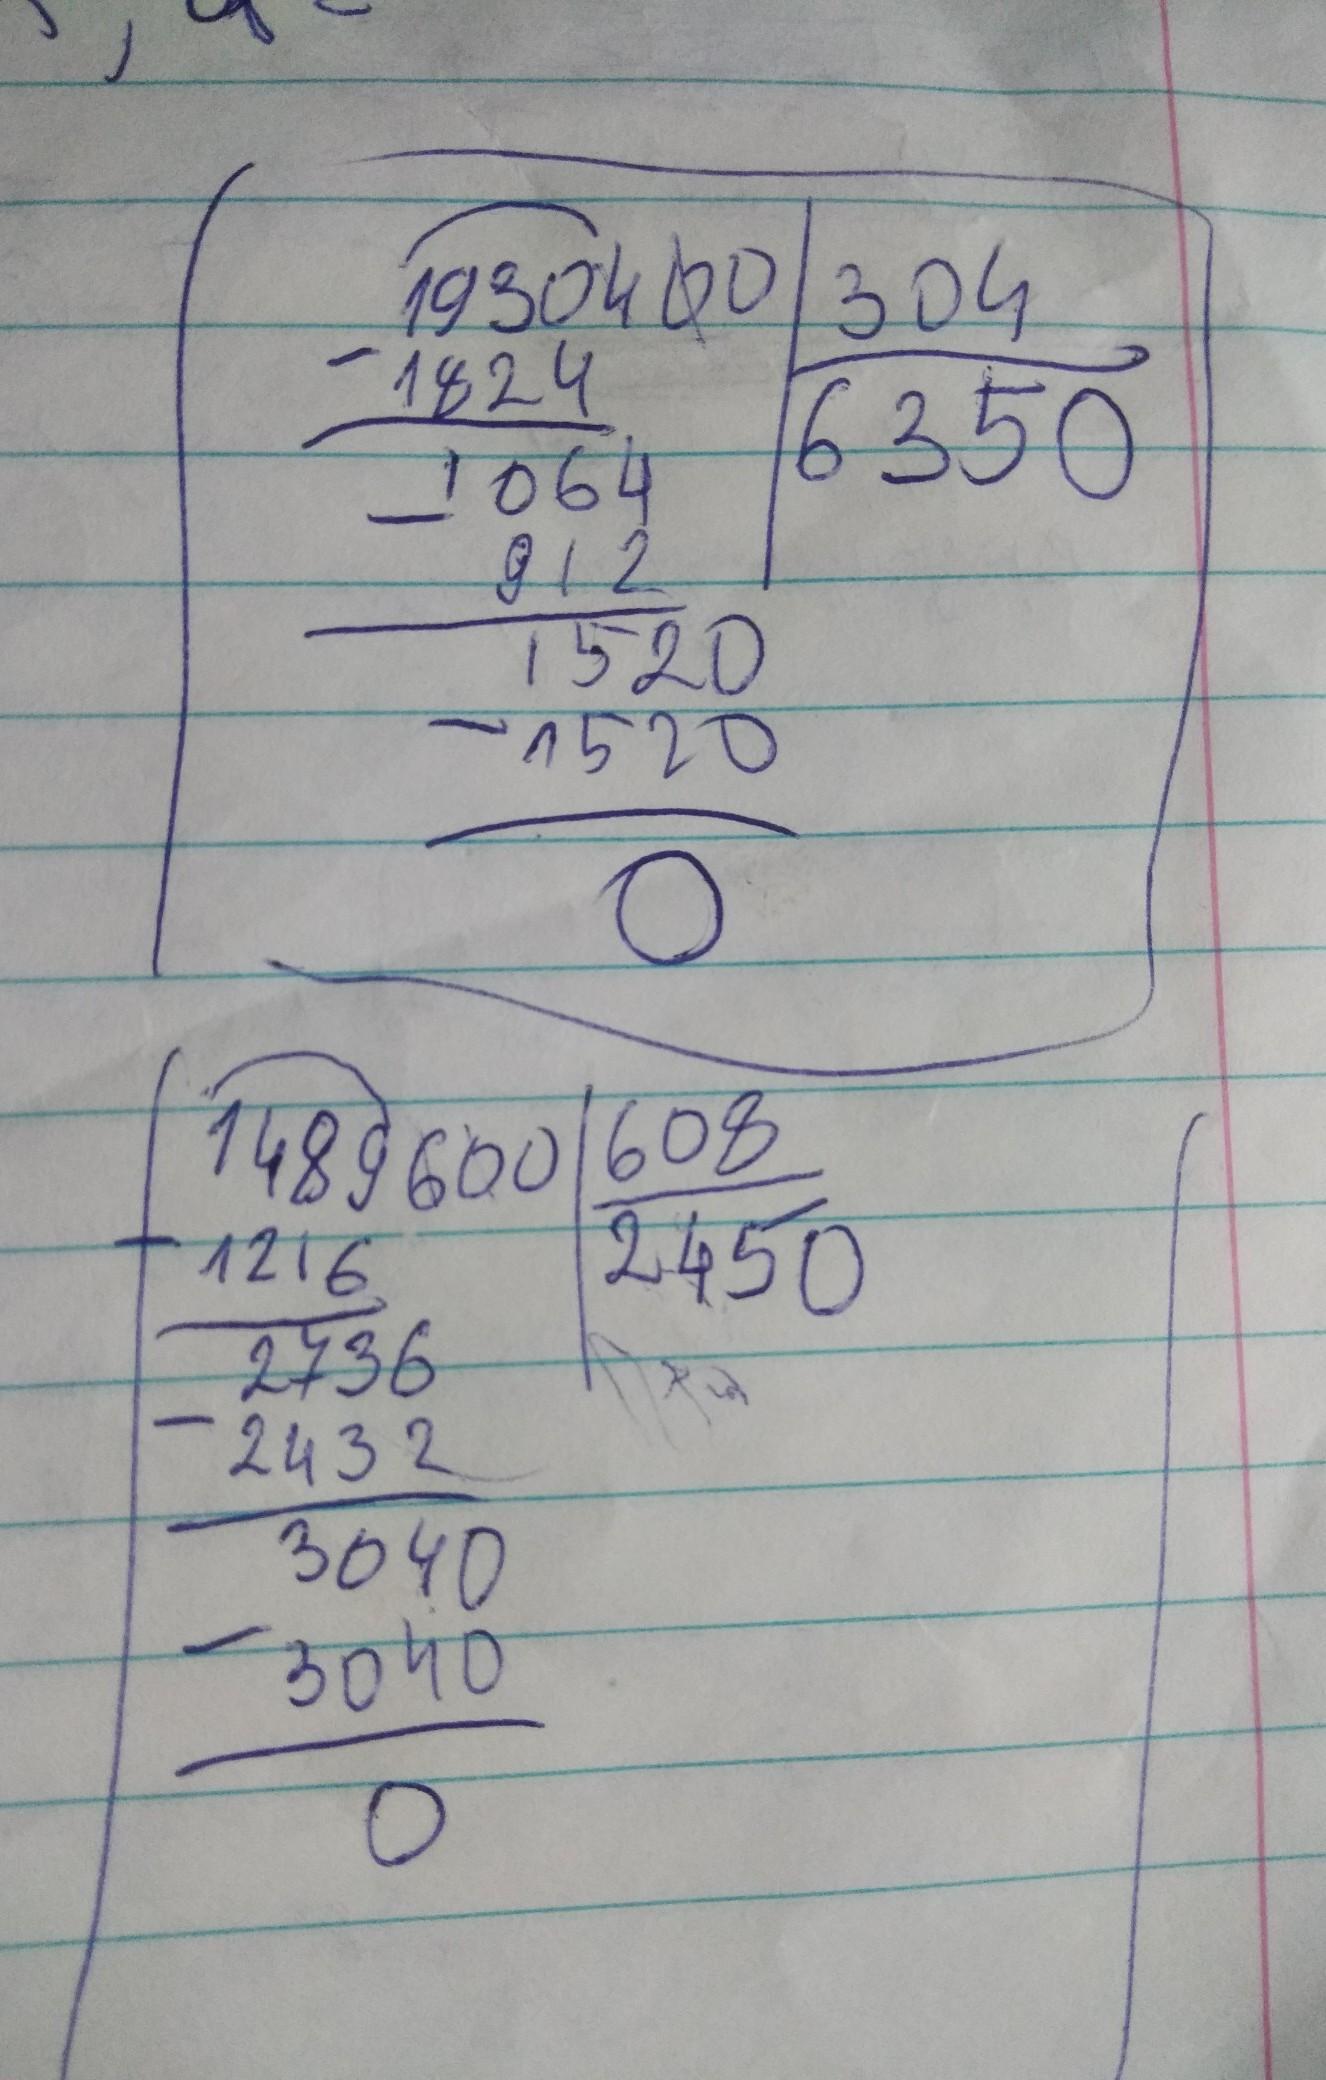 1930400 304
- 1824 6350
- 1064
912
1520
- 1520
0
1489600 608
- 1216 2450
2736
- 2432
3040
- 3040
0